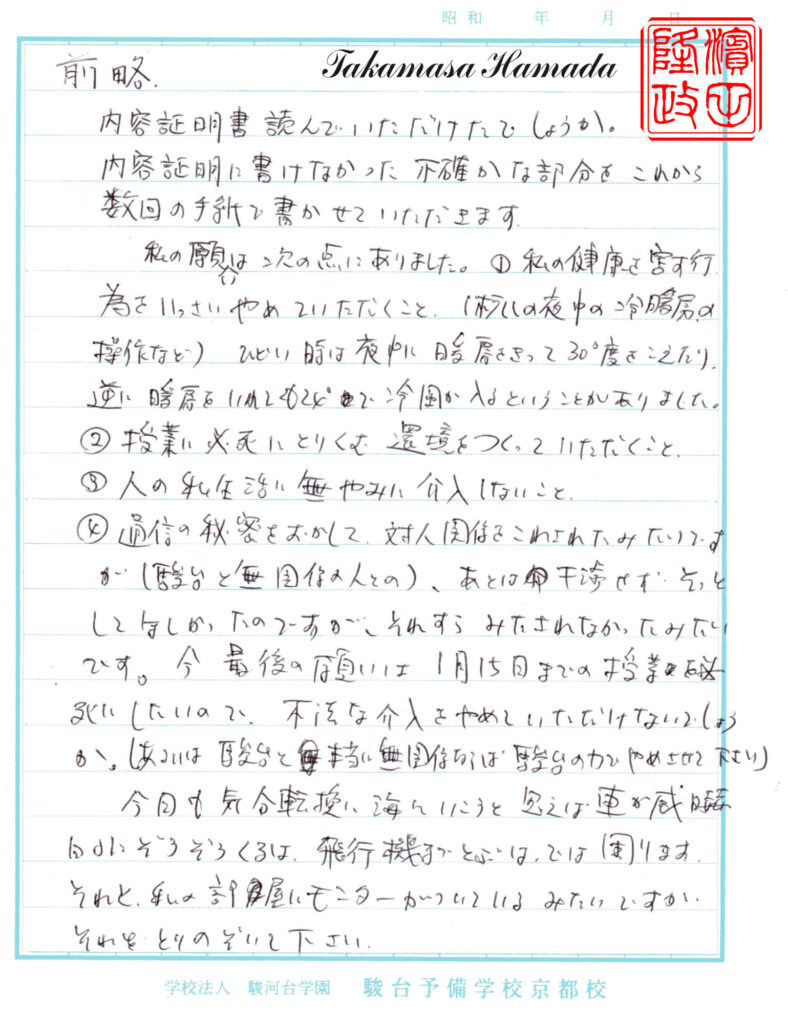 昭和 年 月 日
Takamasa Hamada
濱田隆政
前略.
内容証明書 読んでいただけたでしょうか。
内容証明に書けなかった 不確かな部分を これから
数回の手紙で書かせていただきます.
私の願いは 次の点にありました。① 私の健康を害す行
為をいっさいやめていただくこと. (ホテルの夜中の冷暖房の
操作など) ひどい時は夜中に 暖房をきって30°度をこえたり,
逆に 暖房を いれても24°で 冷風が入るということがありました。
② 授業に 必死にとりくむ 環境をつくっていただくこと.
③ 人の私生活に 無やみに 介入しないこと.
④ 通信の秘密をおかして, 対人関係をこわされたみたいです
が (駿台と無関係の人との)、あとは 干渉せず そっと
して ほしかったのですが、それすら みたされなかったみたい
です。今 最後の願いは 1月15日までの 授業を必
死にしたいので、不法な介入をやめていただけないでしょう
か。(あるいは 駿台と 本当に無関係ならば 駿台の力で やめさせて下さい)
今日も 気分転換に 海へいこうと 思えば 車が
ぞうぞうくるは, 飛行機までとぶは, では 困ります.
それと, 私の 部屋にモニターがついている みたいですが
それを とりのぞいて下さい.
学校法人 駿河台学園 駿台予備学校京都校